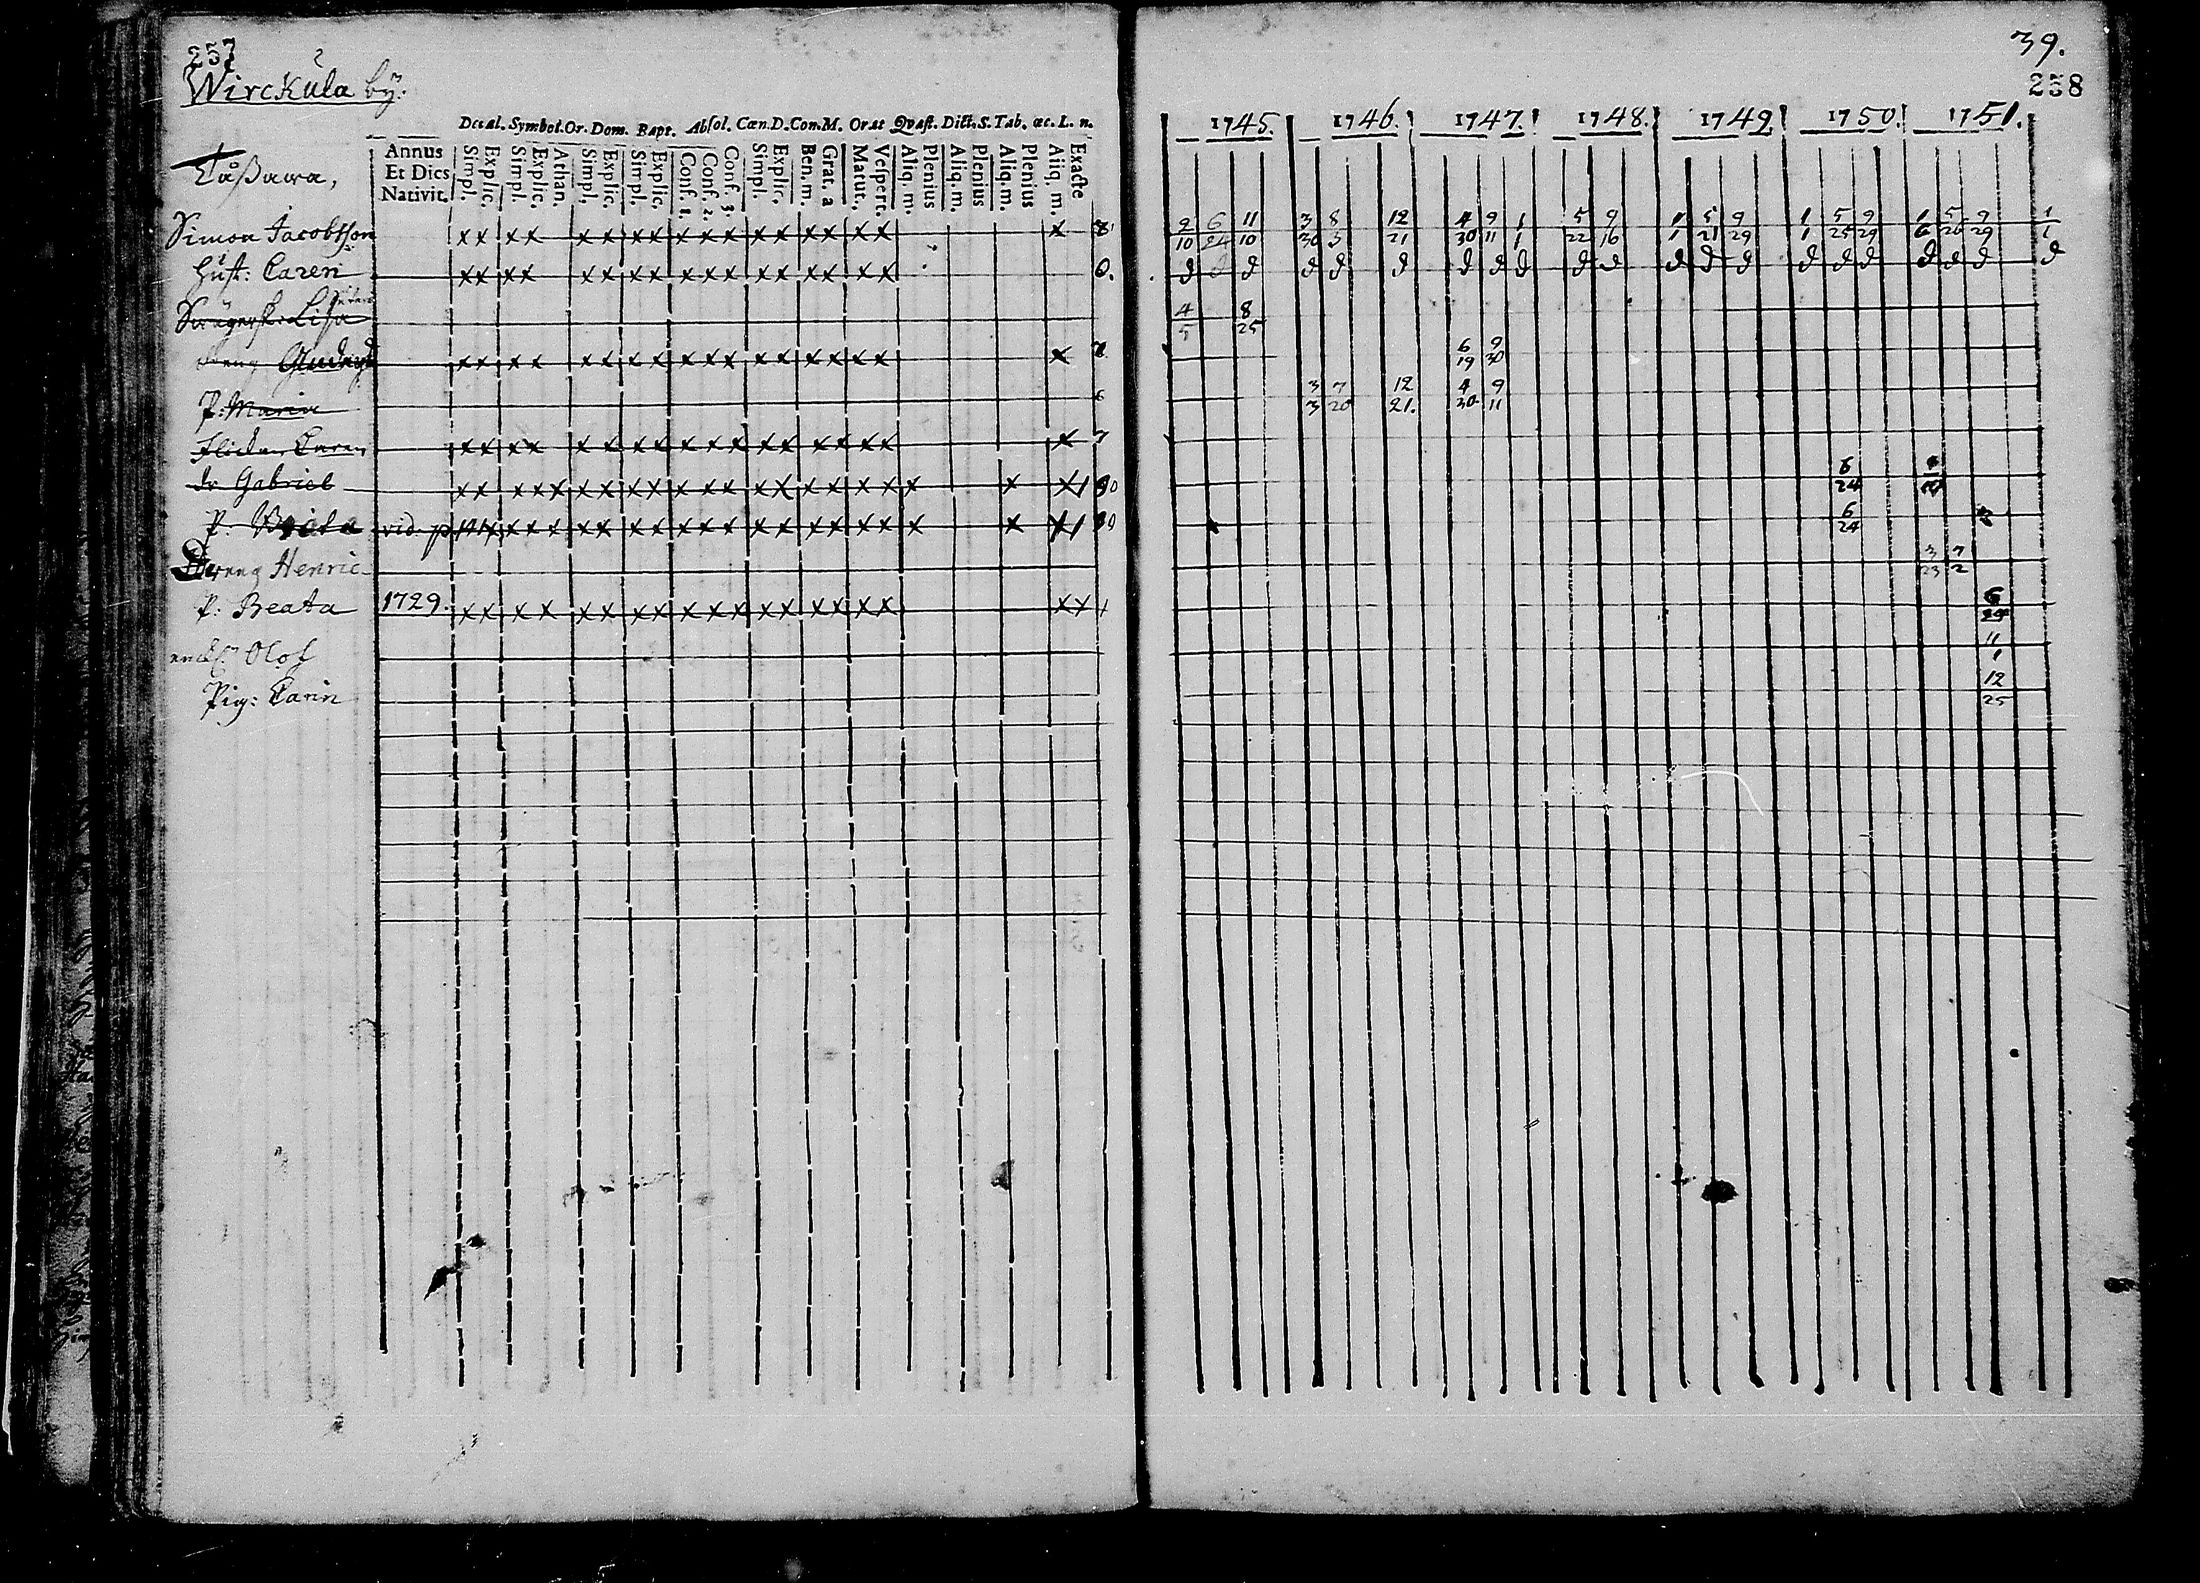 257
Wirckula bÿ.
Decal. Symbol. Or. Dom. Bapt. Absol. Cœn. D. Con. M. Orat Qvæst. Dict. S. Tab. œc. L. n.
Annus
Et Dies
Nativit.
Simpl. Explic. Simpl. Explic. Athan. Simpl. Explic. Simpl. Explic. Conf. 1. Conf. 2. Conf. 3. Simpl. Explic. Ben. m. Grat. a Matut. Vespert. Aliq. m. Plenius Aliq. m. Plenius Aliq. m. Plenius Aliq. m. Exacte
Låßawa,
Simon Jacobsson x x x x x x x x x x x x x x x x x x
Hust: Caren x x x x x x x x x x x x x x x x x
Lisa
x x x x x x x x x x x x x x x x x x
P: Maria
Caren x x x x x x x x x x x x x x x x x x 7
dr Gabriel x x x x x x x x x x x x x x x x x x x x x
P: vid. p. x x x x x x x x x x x x x x x x x x
Dreng Henric
P: Beata 1729. x x x x x x x x x x x x x x x x x x x
Olof
Pig: Carin
39.
238
1745. 1746. 1747. 1748. 1749. 1750. 1751.
9 6 11 3 8 12 4 9 1 5 9 1 5 9 1 5 9 1 5 9 1
10 24 10 30 3 21 30 11 1 22 16 1 21 29 1 25 29 6 26 29 1
d d d d d d d d d d d d d d d d d d d d d
4 8
5 25
6 9
19 30
3 7 12 4 9
3 20 21. 30 11
6
24
6
24
3 7
23 2
6
24
11
1
12
25